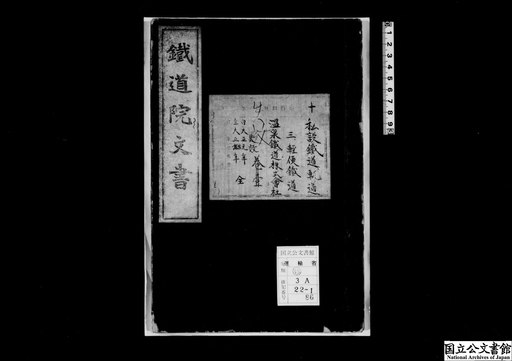 鐵道院文書
十 私設鐵道軌道
三 軽便鐵道
温泉鐵道株式會社
巻壹
自大正元年
全
国立公文書館
運輸省
3A
22-1
86
1 2 3 4 5 6 7 8 9
国立公文書館
National Archives of Japan